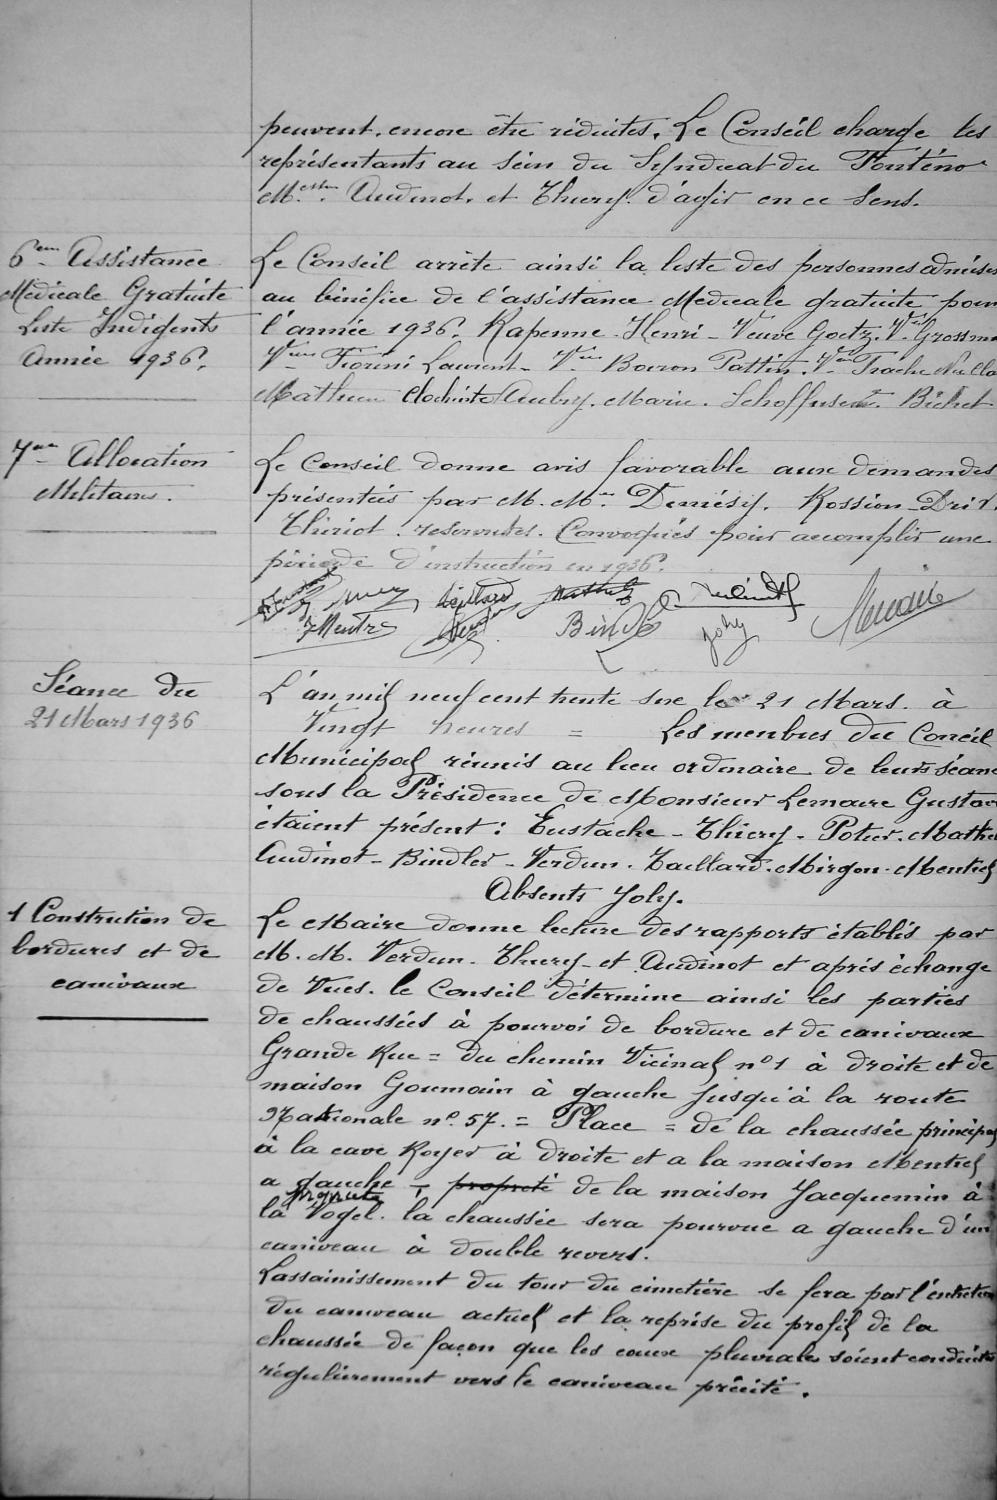 peuvent. encore être réduites. Le Conseil charge les
représentants au sein du Syndicat du Fonténo
M.essrs Audinot. et Thiery. d'agir en ce sens.
6em Assistance
Médicale Gratuite
Liste Indigents
Année 1936.
Le Conseil arrête ainsi la liste des personnes admises
au bénéfice de l'assistance Medicale gratuite pour
l'année 1936. Rapenne Henri - Veuve Goetz. Vve Grossm
Vve Fiorini Laurent - Vve Boiron Pattin. Vve Trache
Mathieu Clochiste Aubry. Marie. Bichet
7me Allocation
Militaires.
Le Conseil donne avis favorable aux demandes
présentées par M. M.rs Demésy. Rossion
Thiriot. reservistes. Convoqués pour accomplir une
période d'instruction en 1936.
Mentre
Bindle
Joly
Lemaire
Séance du
21 Mars 1936
L'an mil neuf cent trente six le 21 Mars. à
Vingt heures = Les menbres du Conseil
Municipal réunis au lieu ordinaire de leurs séan
sous la Présidence de Monsieur Lemaire Gustav
étaient présent : Eustache - Thiery - Potier. Mathi
Audinot - Bindler - Verdun. Taillard. Mirgon. Mentrel
Absents Joly.
1 Constrution de
bordures et de
canivaux
Le Maire donne lecture des rapports établis par
M. M. Verdun. Thiery - et Audinot et aprés échange
de Vues. le Conseil détermine ainsi les parties
de chaussées à pourvoi de bordure et de canivaux
Grande Rue = du chemin Vicinal n° 1 à droite et de
maison Goumain à gauche jusqu'à la route
Nationale n°. 57. = Place = de la chaussée principa
à la cave Royer à droite et a la maison Mentrel
a gauche - propreté de la maison Jacquemin à
la Vogel. la chaussée sera pourvue a gauche d'un
caniveau à double revers.
Lassainissement du tour du cimetière se fera par l'entretien
du caniveau actuel et la reprise du profil de la
chaussée de façon que les eaux pluviales soient conduites
régulièrement vers le caniveau précité.